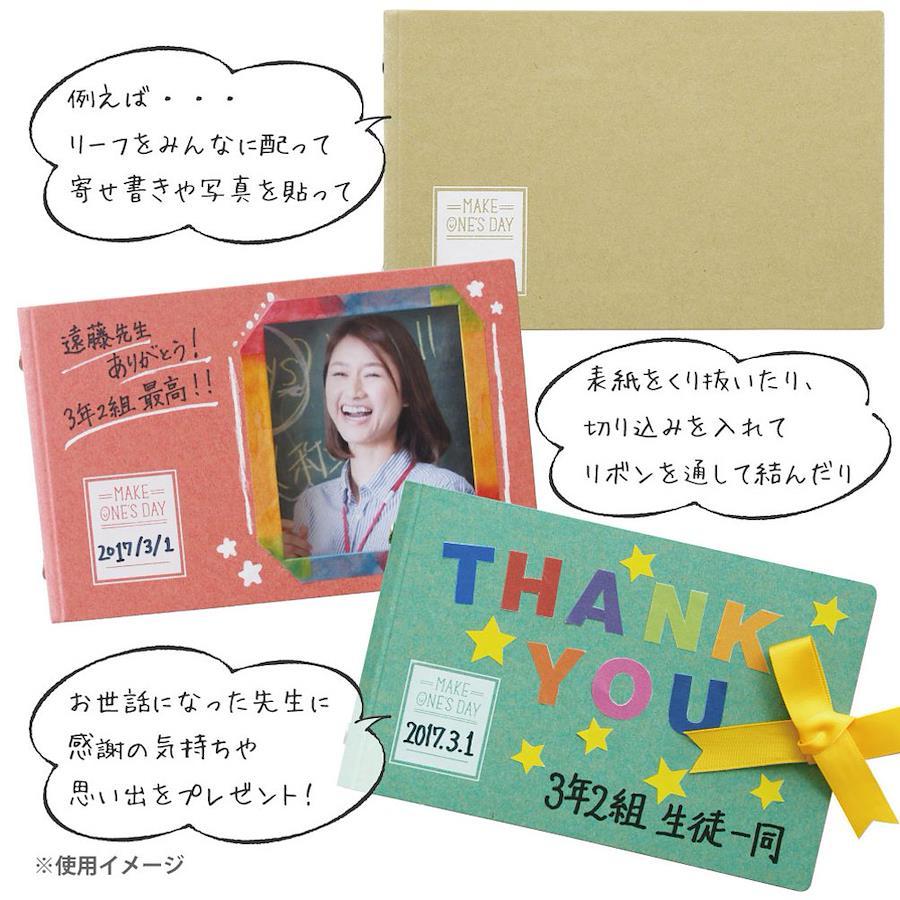 例えば・・・
リーフをみんなに配って
寄せ書きや写真を貼って
MAKE
ONE'S DAY
遠藤先生
ありがとう!
3年2組 最高!!
MAKE
ONE'S DAY
2017/3/1
表紙をくり抜いたり、
切り込みを入れて
リボンを通して結んだり
THANK
YOU
MAKE
ONE'S DAY
2017.3.1
3年2組 生徒一同
お世話になった先生に
感謝の気持ちや
思い出をプレゼント!
※使用イメージ